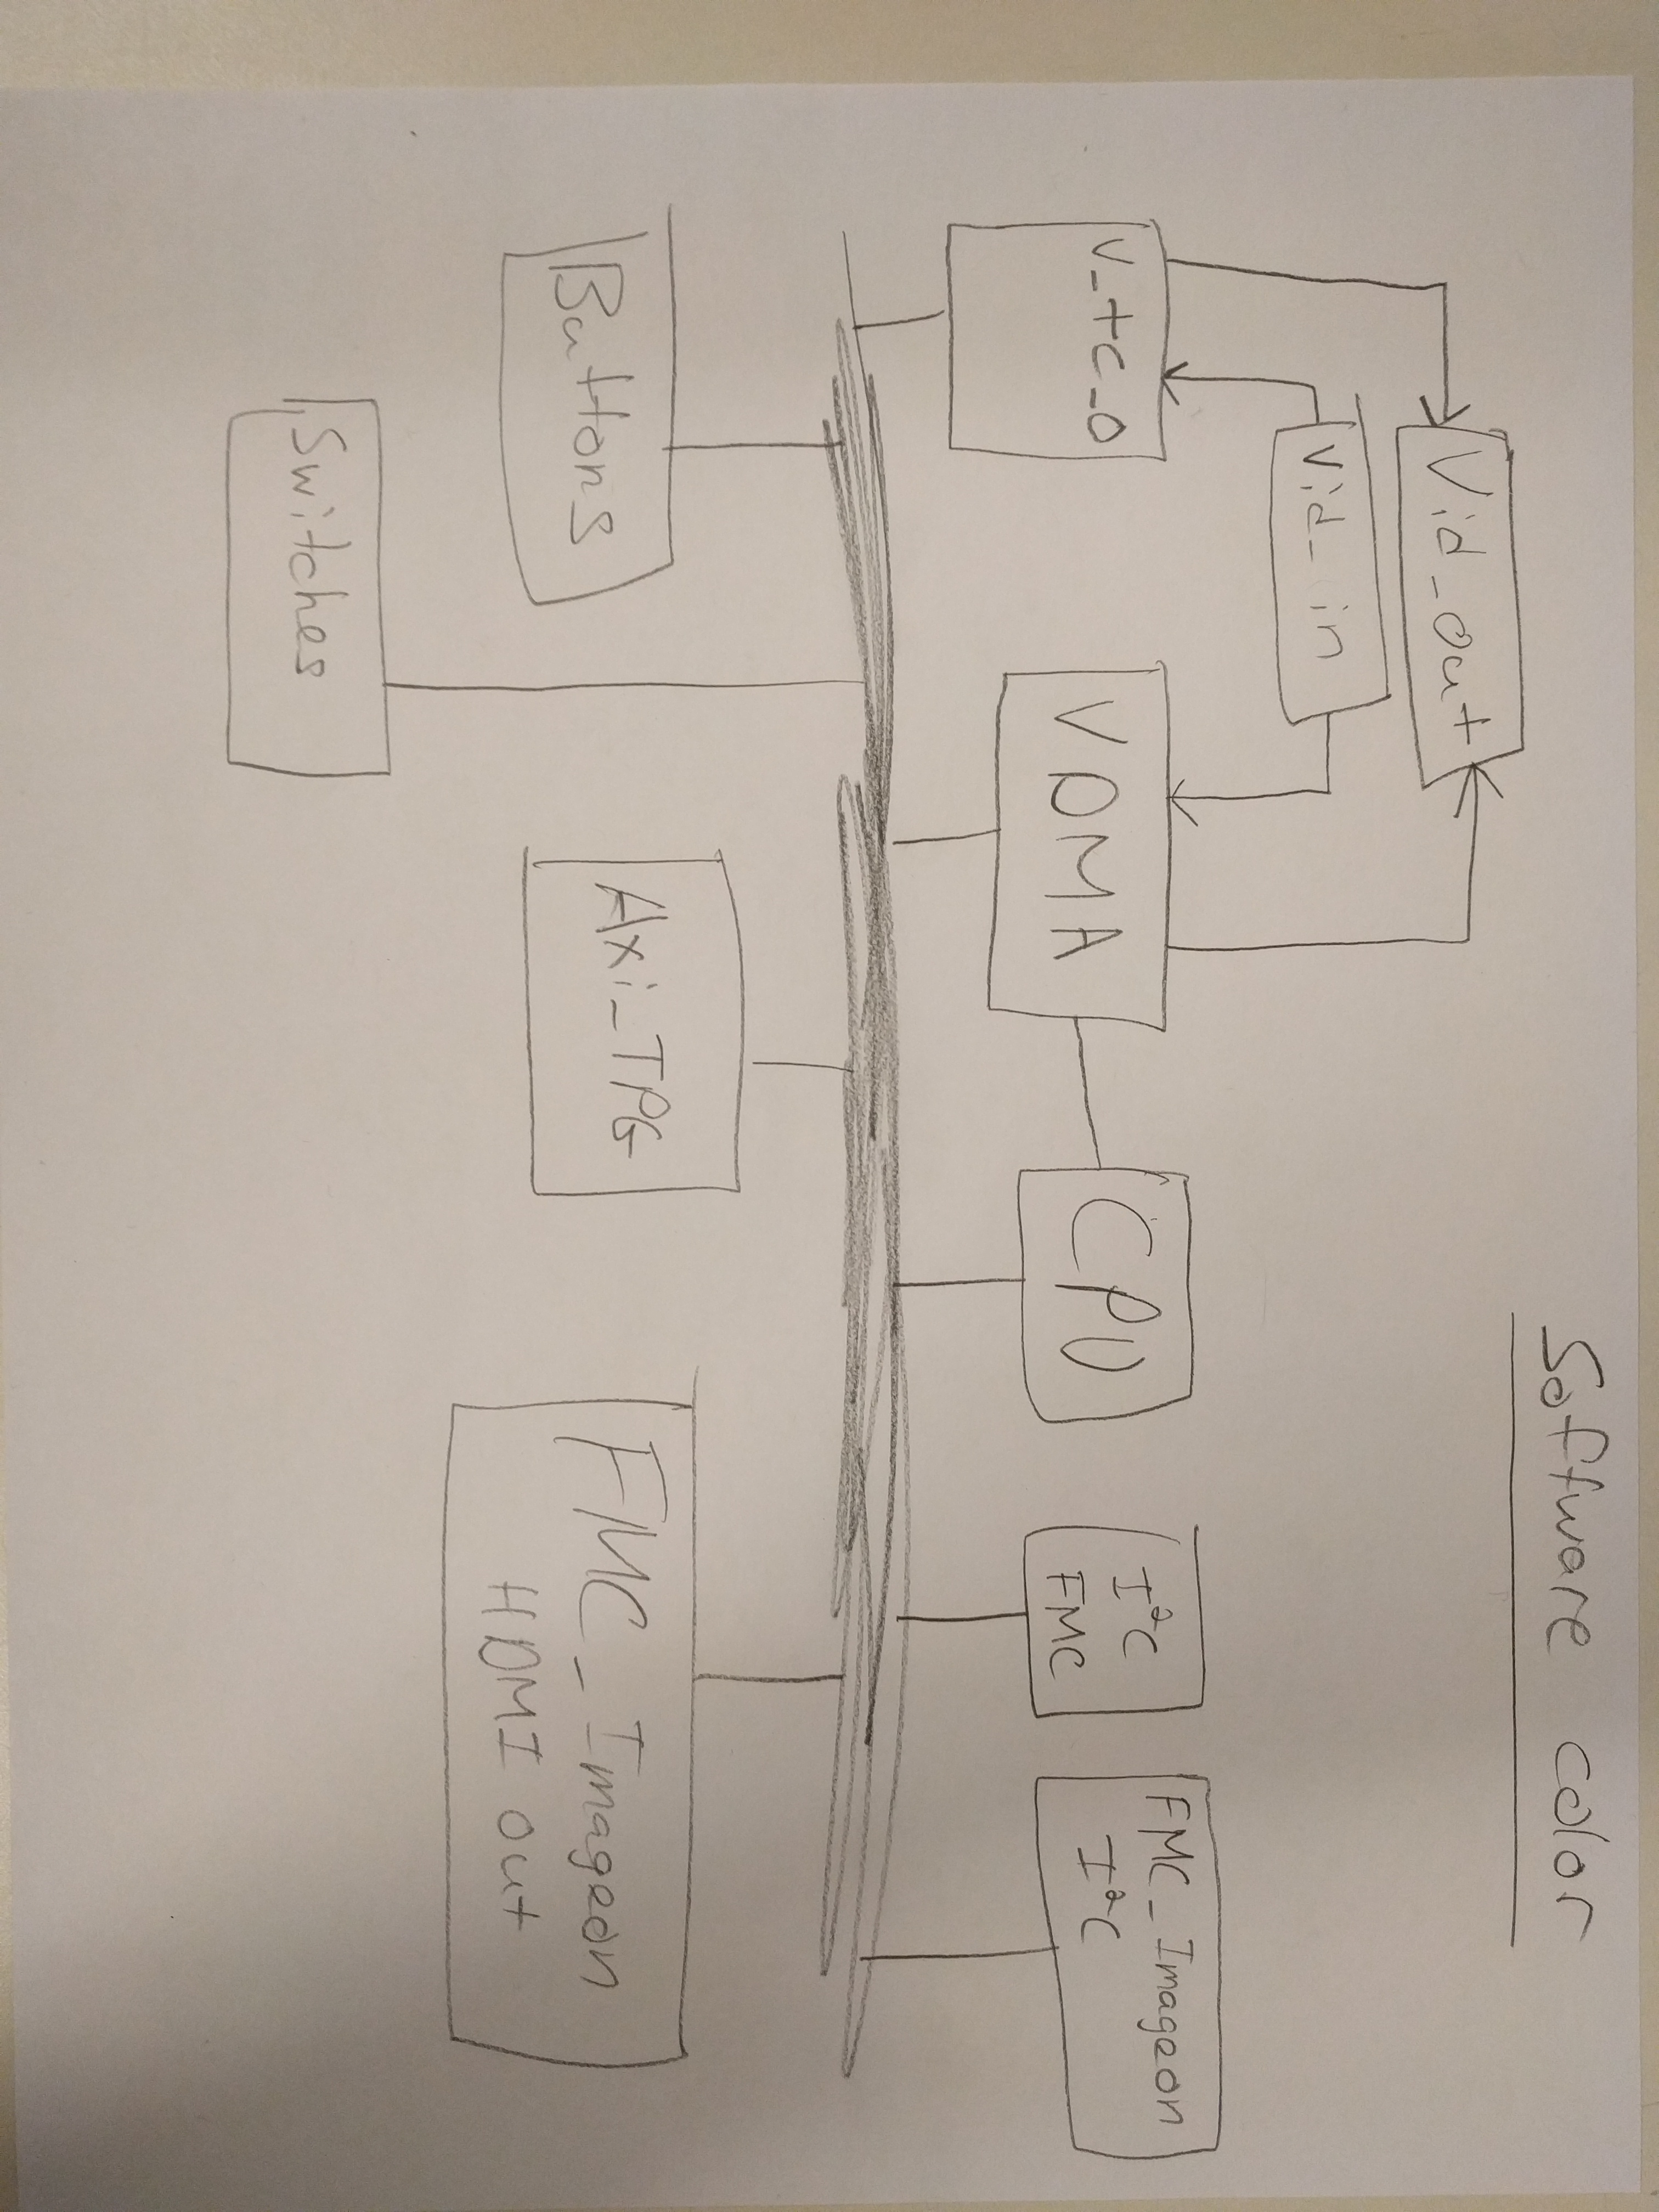 Software color
Vid_out
Vid_in
V_tc_0
VDMA
CPU
I²C
FMC
FMC_Imageon
I²C
Buttons
Switches
Axi_TPG
FMC_Imageon
HDMI out